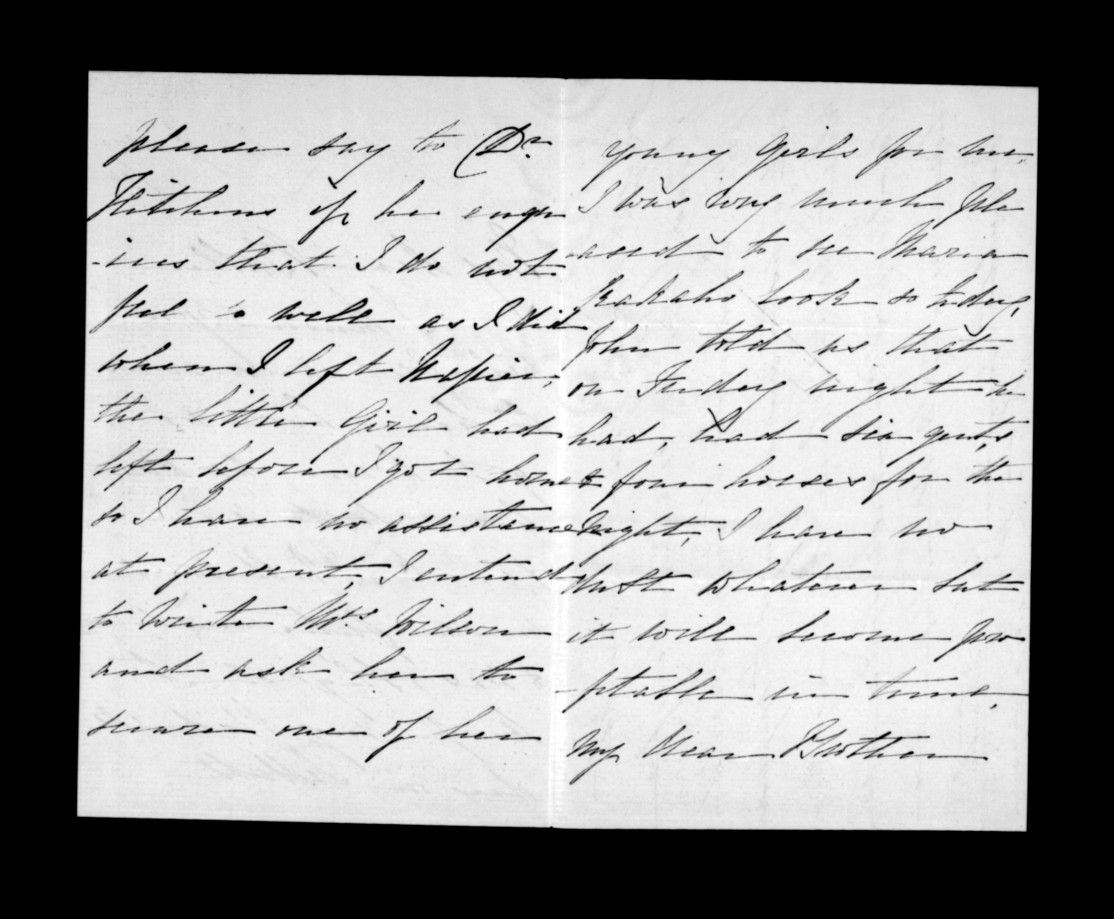 please say to Dr.
Hitchens if he enqu
-ires that I do not
feel so well as I did
when I left Napier,
the little Girl had
left before I got home
so I have no assistance
at present, I intend
to write Mrs Wilson
and ask her to
secure one of her
young Girls for me,
I was very much ple
-ased to see Maria
look so tidy,
John told us that
on Friday night he
had, had six gents,
& four horses for the
night, I have no
doubt whatever but
it will become pro
-fitable in time,
My Dear Brother